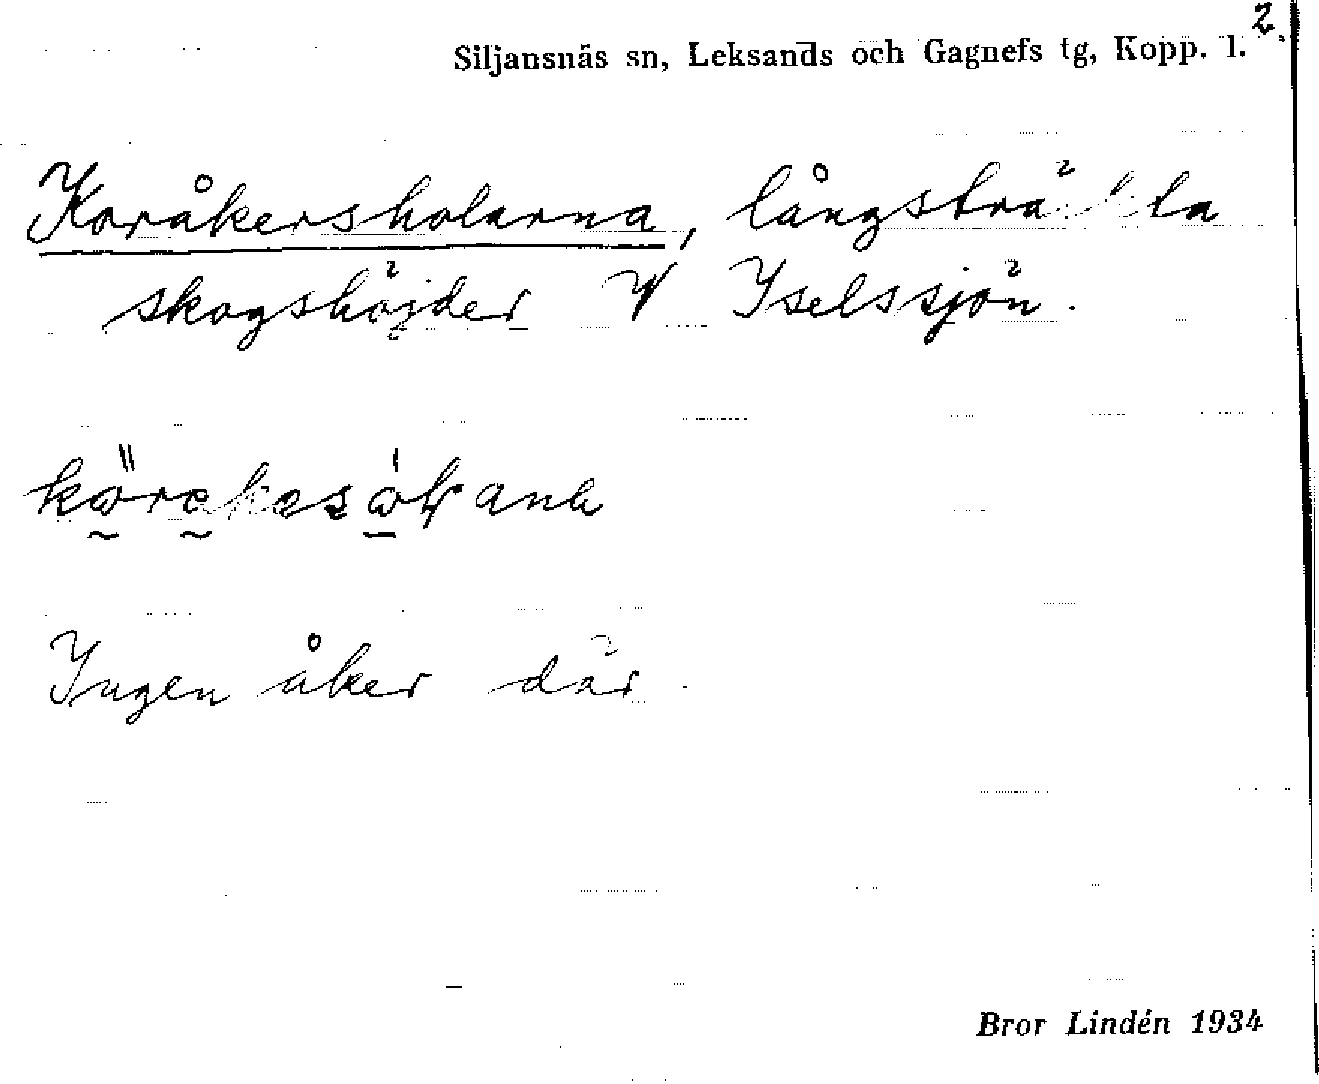 2.
Siljansnäs sn, Leksands och Gagnefs tg, Kopp. l.
Koråkersholarna, långsträckta
skogshöjder V Yselssjön.
Ingen åker där.
Bror Lindén 1934